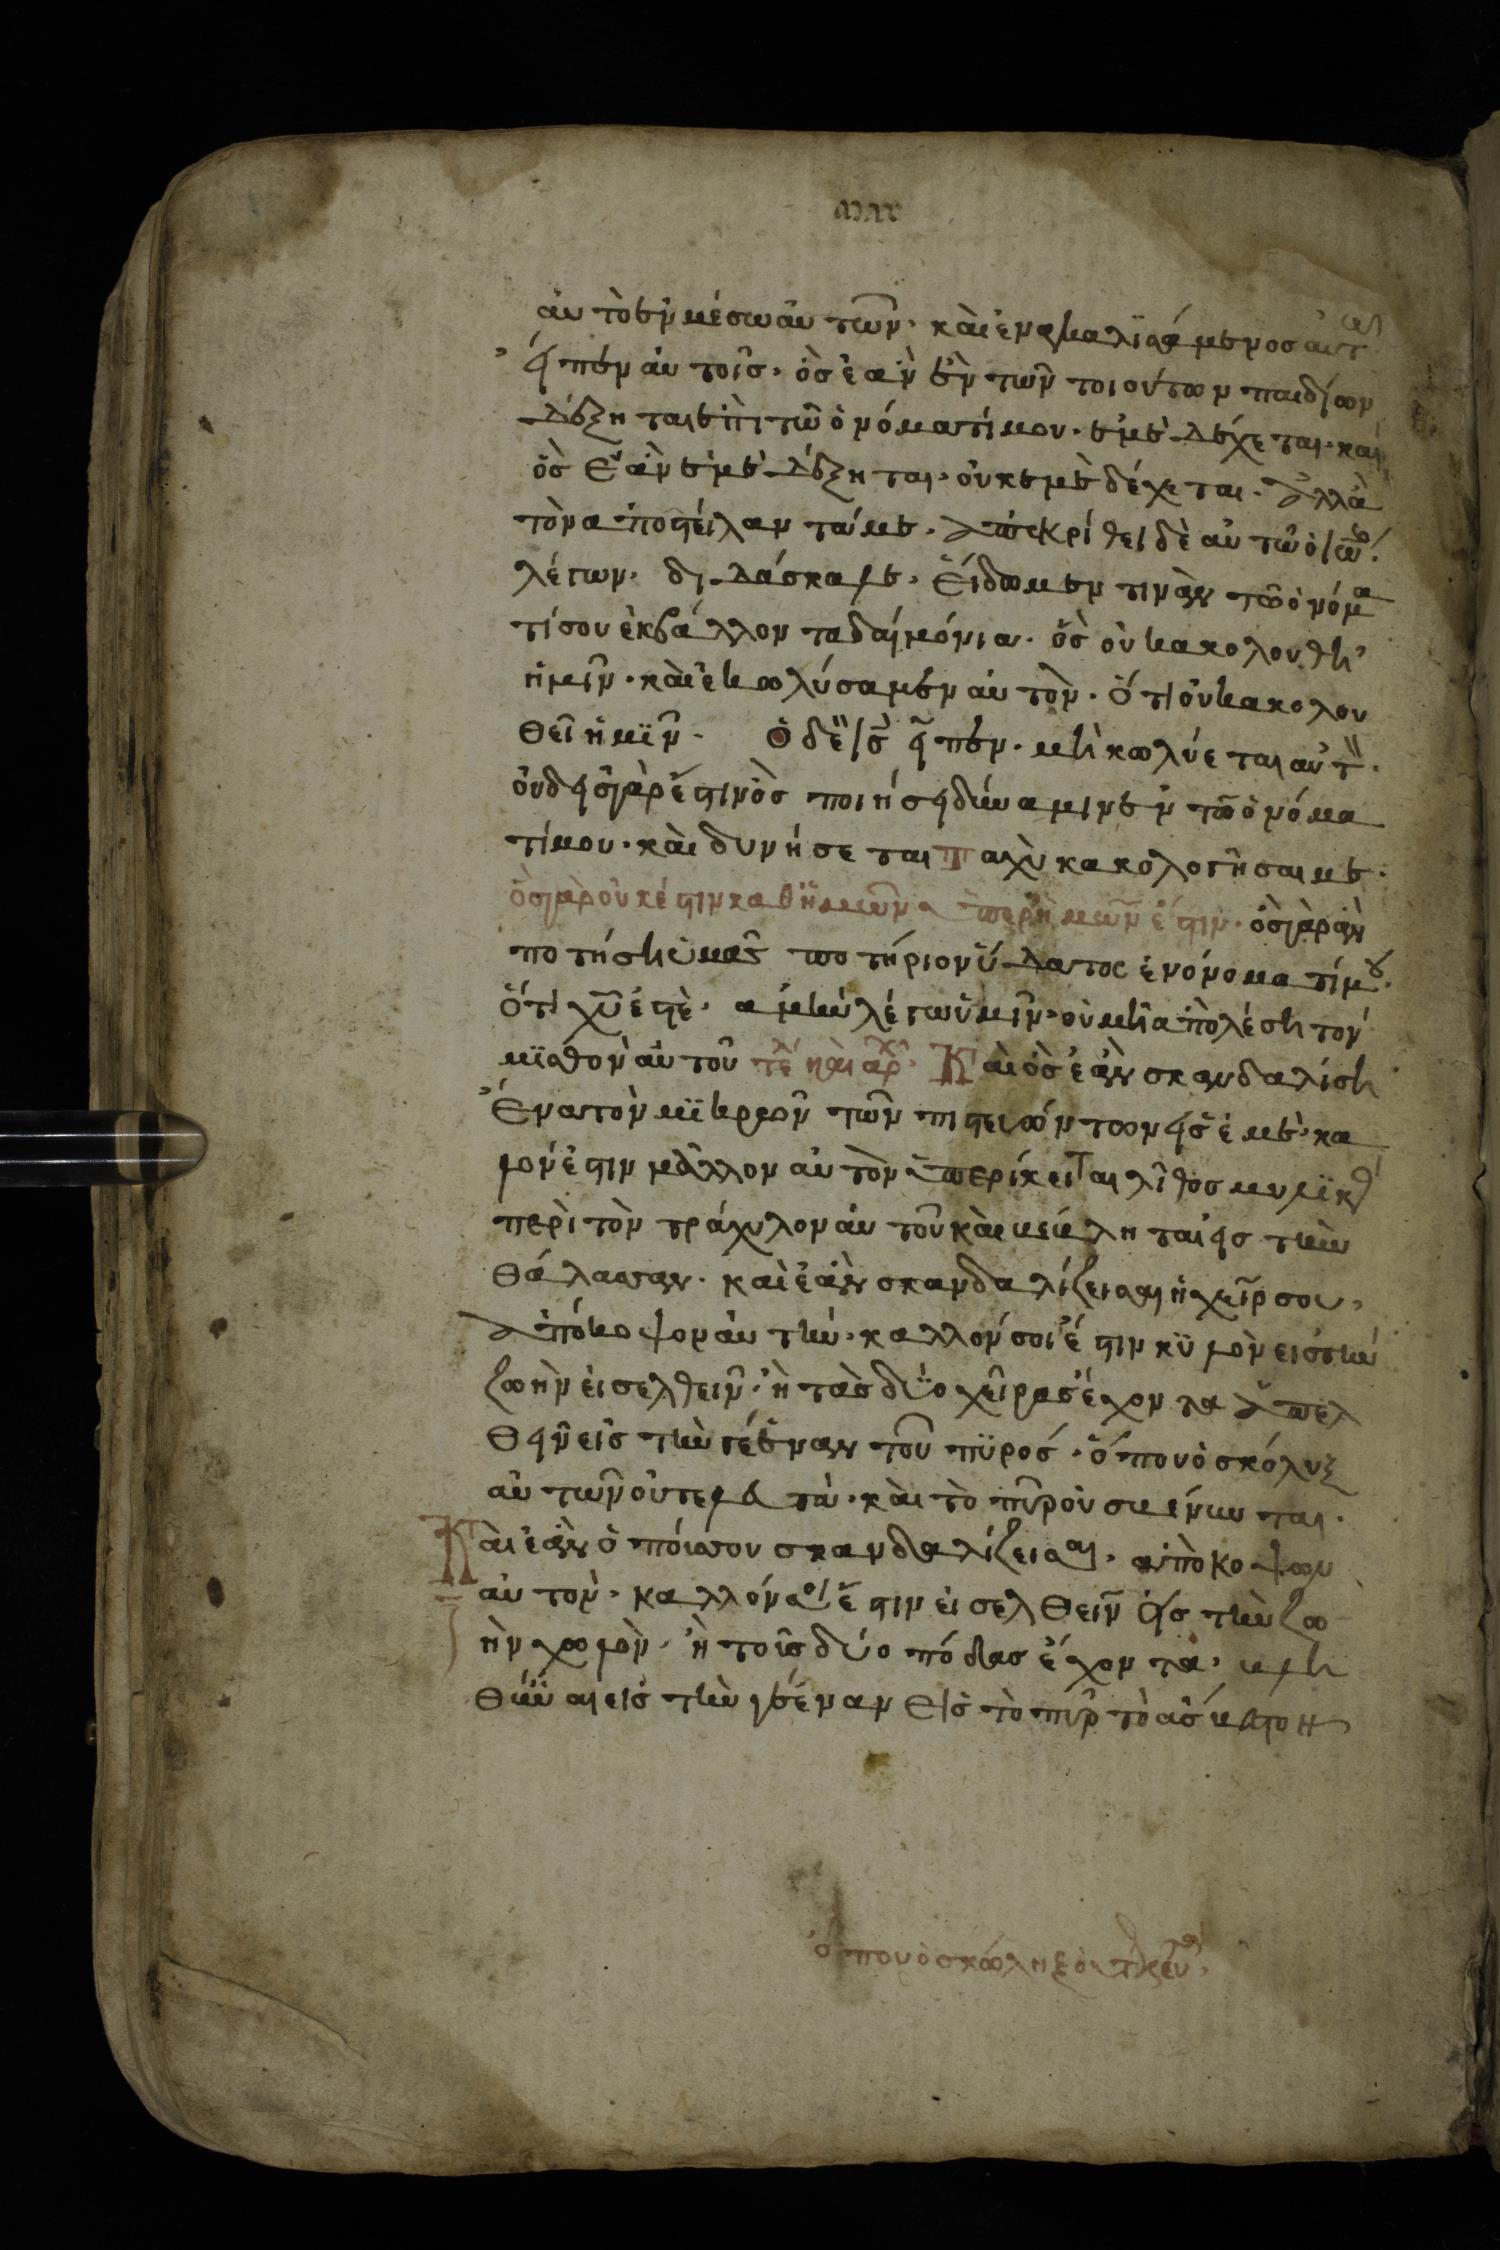 μαρ
αὐτὸ ἐν μέσω αὐτῶν· καὶ ἐναγκαλϊσάμενος αὐτ
εἶπεν αὐτοῖς· ὃς ἐὰν ἓν τῶν τοιούτων παιδίων
δέξηται ἐπὶ τῶ ὀνόματί μου· ἐμὲ δέχεται· καὶ
ὃς ἐὰν ἐμὲ δέξηται· οὐκ ἐμὲ δέχεται· ἀλλὰ
τὸν ἀποστείλαντά με· ἀπεκρίθει δὲ αὐτῶ ὁ ἰω
λέγων· διδάσκαλε· εἴδωμεν τινὰν τῶ ὀνόμα
τί σου ἐκβάλλον τα δαιμόνια· ὃς οὐκ ακολουθῆ
ἡμῖν· καὶ ἐκωλύσαμεν αὐτὸν· ὅτι οὐκ ακολου
θεῖ ἡμῖν· Ὁ δὲ ις εἶπεν· μὴ κωλύεται αὐτ
οὐδεὶς γὰρ ἔστιν ὃς ποιήσει δύναμιν ἐν τῶ ὀνόμα
τί μου· καὶ δυνήσεται ταχὺ κακολογῆσαι με·
ὃς γὰρ οὐκ ἔστιν καθ ἡμῶν ὑπερ ἡμῶν ἐστιν· ὃς γὰρ ἂν
ποτήση ὑμᾶς ποτήριον ὕδατος ἐν ὀνόματί μου·
ὅτι χυ ἐστὲ· ἀμὴν λέγω ὑμῖν· οὐ μὴ ἀπολέση τὸν
μϊσθὸν αὐτοῦ τε αρχ Καὶ ὃς ἐὰν σκανδαλίση
ἕνα τὸν μϊκρῶν τῶν πιστευόντων εἰς ἐμὲ· κα
λόν ἐστιν μᾶλλον αὐτὸν περίκειται λῖθος μυλϊκ
περὶ τὸν τράχυλον αὐτοῦ καὶ βέβληται εἰς τὴν
θάλασσαν· καὶ ἐὰν σκανδαλίζει σαι ἡ χεῖρ σου,
ἀπόκοψον αὐτήν· καλλόν σοι ἐστιν κϋλὸν εἰς τὴν
ζωὴν εἰσελθεῖν· ἢ τὰς δύο χεῖρας ἔχοντα ἀπελ
θεῖν εἰς τὴν γέεναν τοῦ πϋρός· ὅπου ὁ σκόλυξ
αὐτῶν οὐ τελευτὰ· καὶ τὸ πῦρ οὐ σβένυται·
Καὶ ἐὰν ὁ πόυς σου σκανδαλίζει σαι· ἀπόκοψων
αὐτὸν· καλλόν σοι ἔστιν εἰσελθεῖν εἰς τὴν ζω
ὴν χωλὸν· ἢ τοῖς δύο πόδας ἔχοντα· βλη
θῆναι εἰς τὴν γέεναν εἰς τὸ πῦρ τὸ ἄσβεστον
ὅπου ὁ σκώληξ